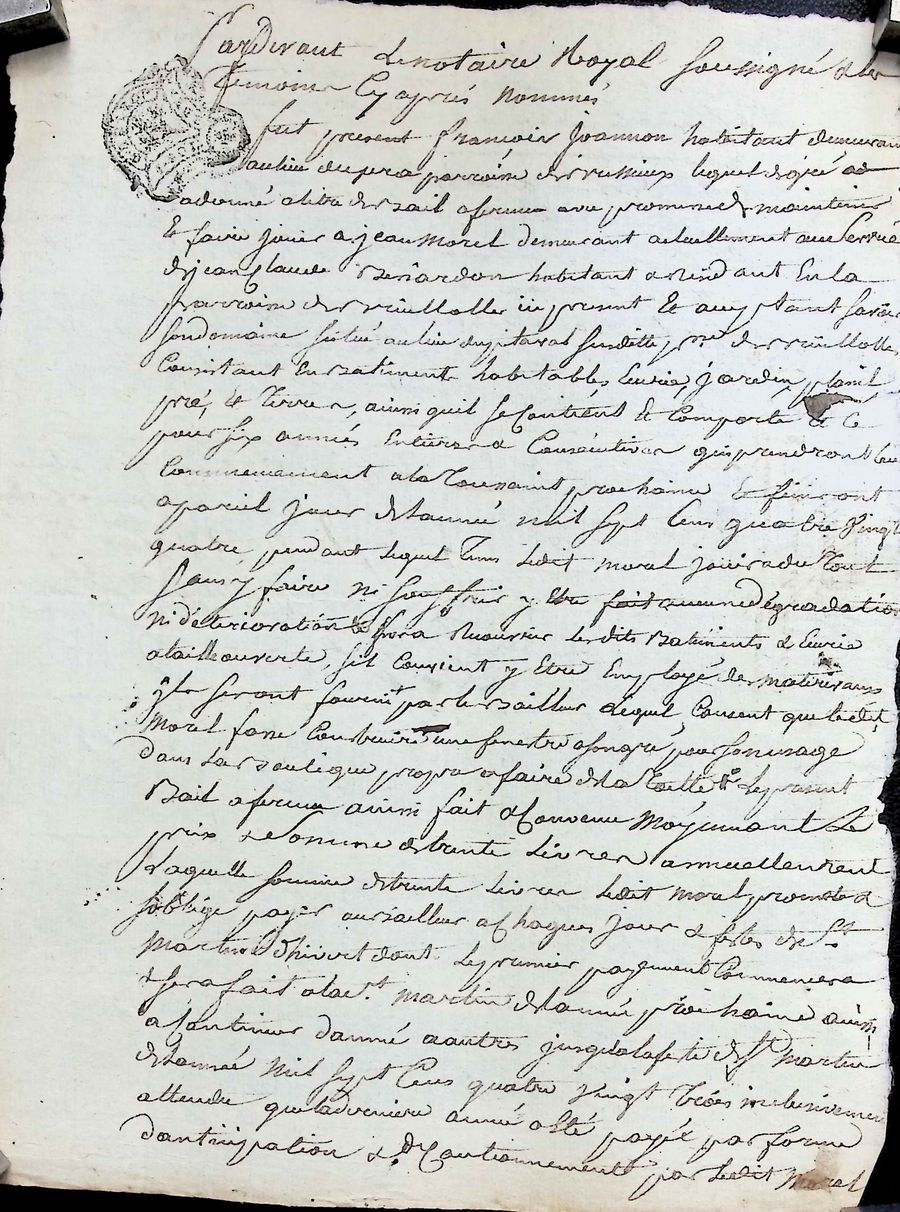 Pardevant le notaire Royal soussigné & les
temoins cy après nommés
fut present françois Joannon habitant demeurant
au lieu du pera parroisse de lequel de gré a
a donné a titre de bail a ferme avec promesse de maintenir
Et faire jouir a jean Morel demeurant actuellement au Service
de jean Claude habitant a En la
parroisse de icy present Et acceptant savoir
son domaine situé au lieu du susditte psse de
Consistant En batiments habitables, Ecurie, jardin,
pré, & Terres, ainsi quil se Contient Et Comporte & Ce
pour six années Entieres & Consécutives qui prendront leur
Commencement a la Toussaint prochaine & finiront
a pareil jour de lannée mil sept Cens quatre vingt
quatre, pendant lequel Tems ledit morel jouira du Tout
sans y faire ni souffrir y Etre fait aucune dégradation
ni déterioration & fera Recouvrir lesdits Batiments & Ecurie
a taille ouverte, sil Convient y Etre Employé des matériaux
ils seront fournit par le Bailleur lequel Consent que ledit
Morel fasse Construire une fenestre a son gré pour son usage
dans la Boutique propre a faire de la Toille Le present
Bail a ferme ainsi fait & Convenu Moyennant Le
prix & Somme de trente Livres annuellement
Laquelle somme de trente Livres ledit morel promet &
soblige payer au bailleur a Chaques jour & festes de St
Martin dhivert dont Le premier payement Commencera
& sera fait a la St Martin de lannée prochaine ainsi
a Continuer dannée a autres jusqua la feste de St Martin
de lannée mil sept Cens quatre vingt Trois inclusivement
attendu que la derniere année a Eté payée par forme
dantissipation & de Cautionnement par Ledit Morel